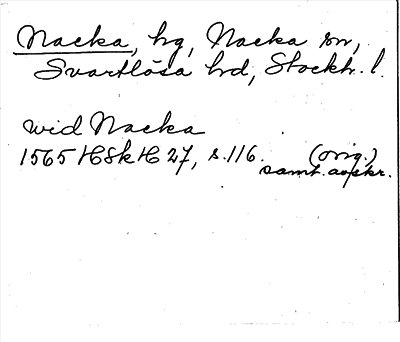 Nacka, hg, Nacka sn,
Svartlösa hd, Stockh. l.
wid Nacka
1565 HSkH 27, s. 116. (orig.)
samt. avskr.